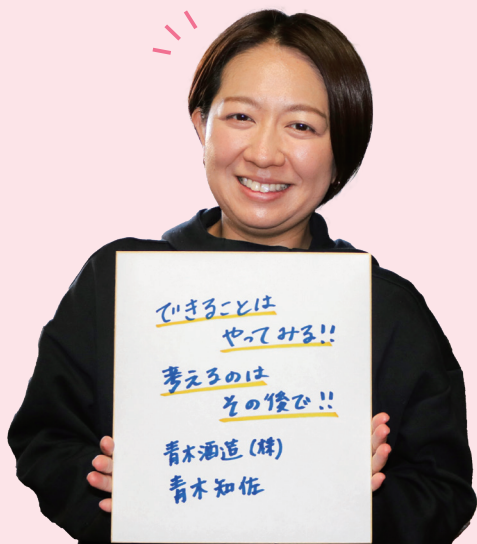 できることは
やってみる!!
考えるのは
その後で!!
青木酒造(株)
青木知佐